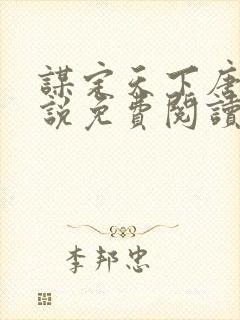 謀定天下唐
說免費閱讀
李邦忠